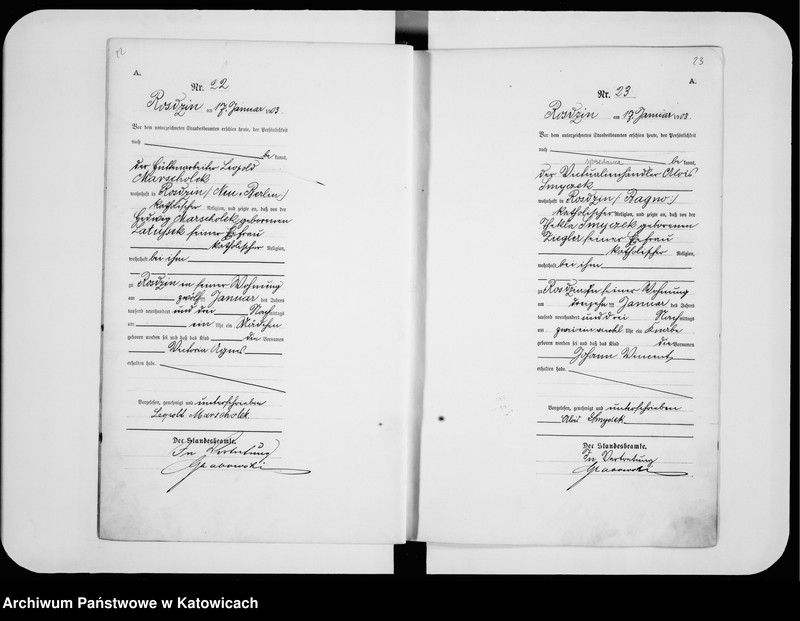 22
A.
Nr. 22
Rosdzin am 17. Januar 1903
Vor dem unterzeichneten Standesbeamten erschien heute, der Persönlichkeit
nach
be kannt,
der Hüttenarbeiter Leopold
Marscholek
wohnhaft in Rosdzin (Neu-Berlin)
katholischer Religion, und zeigte an, daß von der
Hedwig Marscholek geborenen
Latussek seiner Ehefrau
katholischer Religion,
wohnhaft bei ihm
zu Rosdzin in seiner Wohnung
am zwölften Januar des Jahres
tausend neunhundert und drei Nachmittags
um ein Uhr ein Mädchen
geboren worden sei und daß das Kind die Vornamen
Victoria Agnes
erhalten habe.
Vorgelesen, genehmigt und unterschrieben
Leopold Marscholek
Der Standesbeamte.
In Vertretung
Grabowski
23
A.
Nr. 23
Rosdzin am 17. Januar 1903
Vor dem unterzeichneten Standesbeamten erschien heute, der Persönlichkeit
nach
be kannt,
der Victualienhändler Alois
Smyczek
wohnhaft in Rosdzin (Bagno)
katholischer Religion, und zeigte an, daß von der
Thekla Smyczek geborenen
Ziegler seiner Ehefrau
katholischer Religion,
wohnhaft bei ihm
zu Rosdzin in seiner Wohnung
am Januar des Jahres
tausend neunhundert und drei Nachmittags
um Uhr ein Knabe
geboren worden sei und daß das Kind die Vornamen
Johann Vincent
erhalten habe.
Vorgelesen, genehmigt und unterschrieben
Alois Smyczek
Der Standesbeamte.
In Vertretung
Grabowski
Archiwum Państwowe w Katowicach